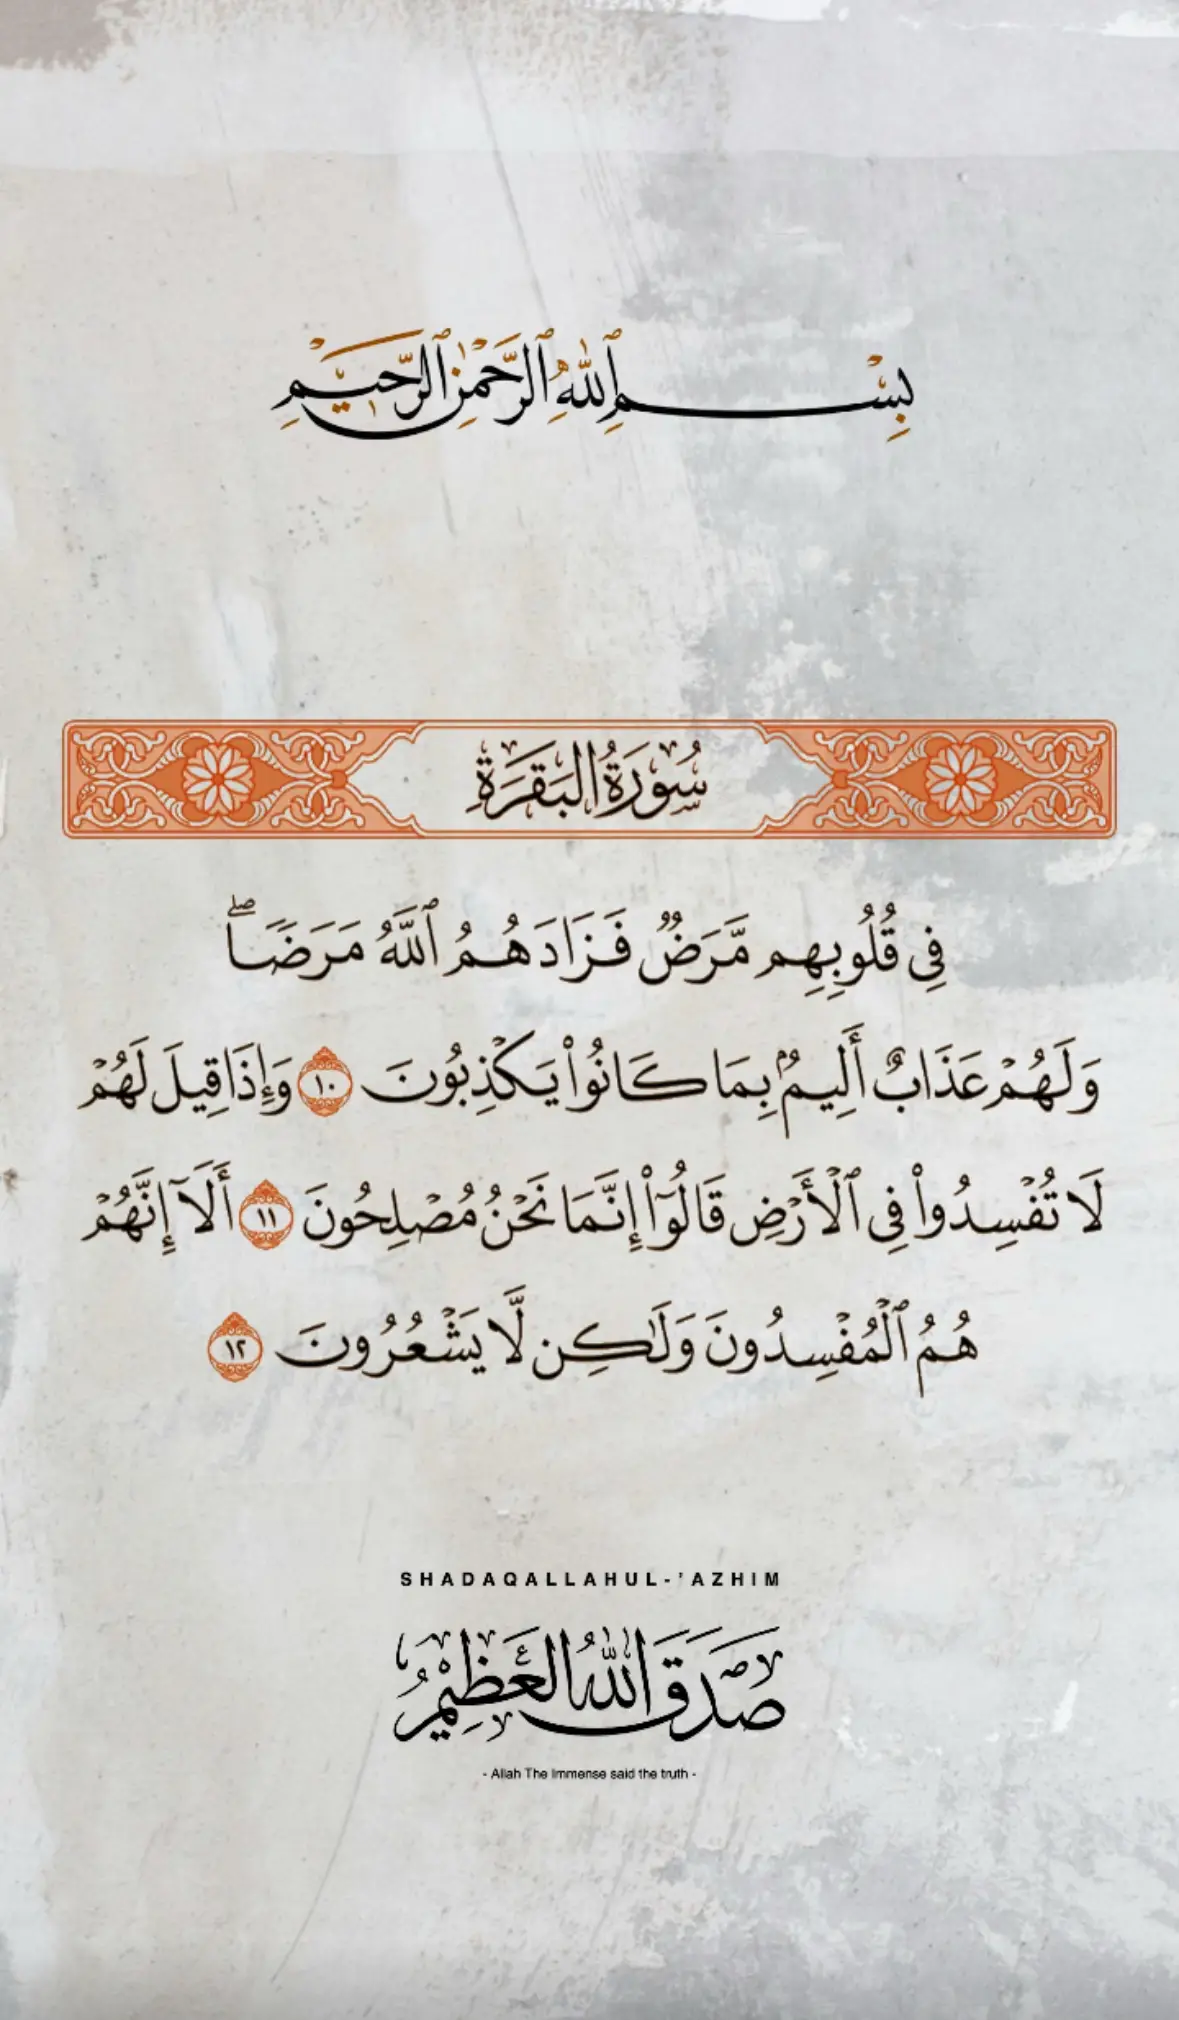 بِسْمِ ٱللَّهِ ٱلرَّحْمَٰنِ ٱلرَّحِيمِ
سُورَةُ البَقَرَةِ
فِى قُلُوبِهِم مَّرَضٌ فَزَادَهُمُ ٱللَّهُ مَرَضًاۖ
وَلَهُمْ عَذَابٌ أَلِيمٌۢ بِمَا كَانُوا۟ يَكْذِبُونَ ١٠ وَإِذَا قِيلَ لَهُمْ
لَا تُفْسِدُوا۟ فِى ٱلْأَرْضِ قَالُوٓا۟ إِنَّمَا نَحْنُ مُصْلِحُونَ ١١ أَلَآ إِنَّهُمْ
هُمُ ٱلْمُفْسِدُونَ وَلَٰكِن لَّا يَشْعُرُونَ ١٢
SHADAQALLAHUL-'AZHIM
صَدَقَ اللّٰهُ العَظِيْمُ
- Allah The Immense said the truth -